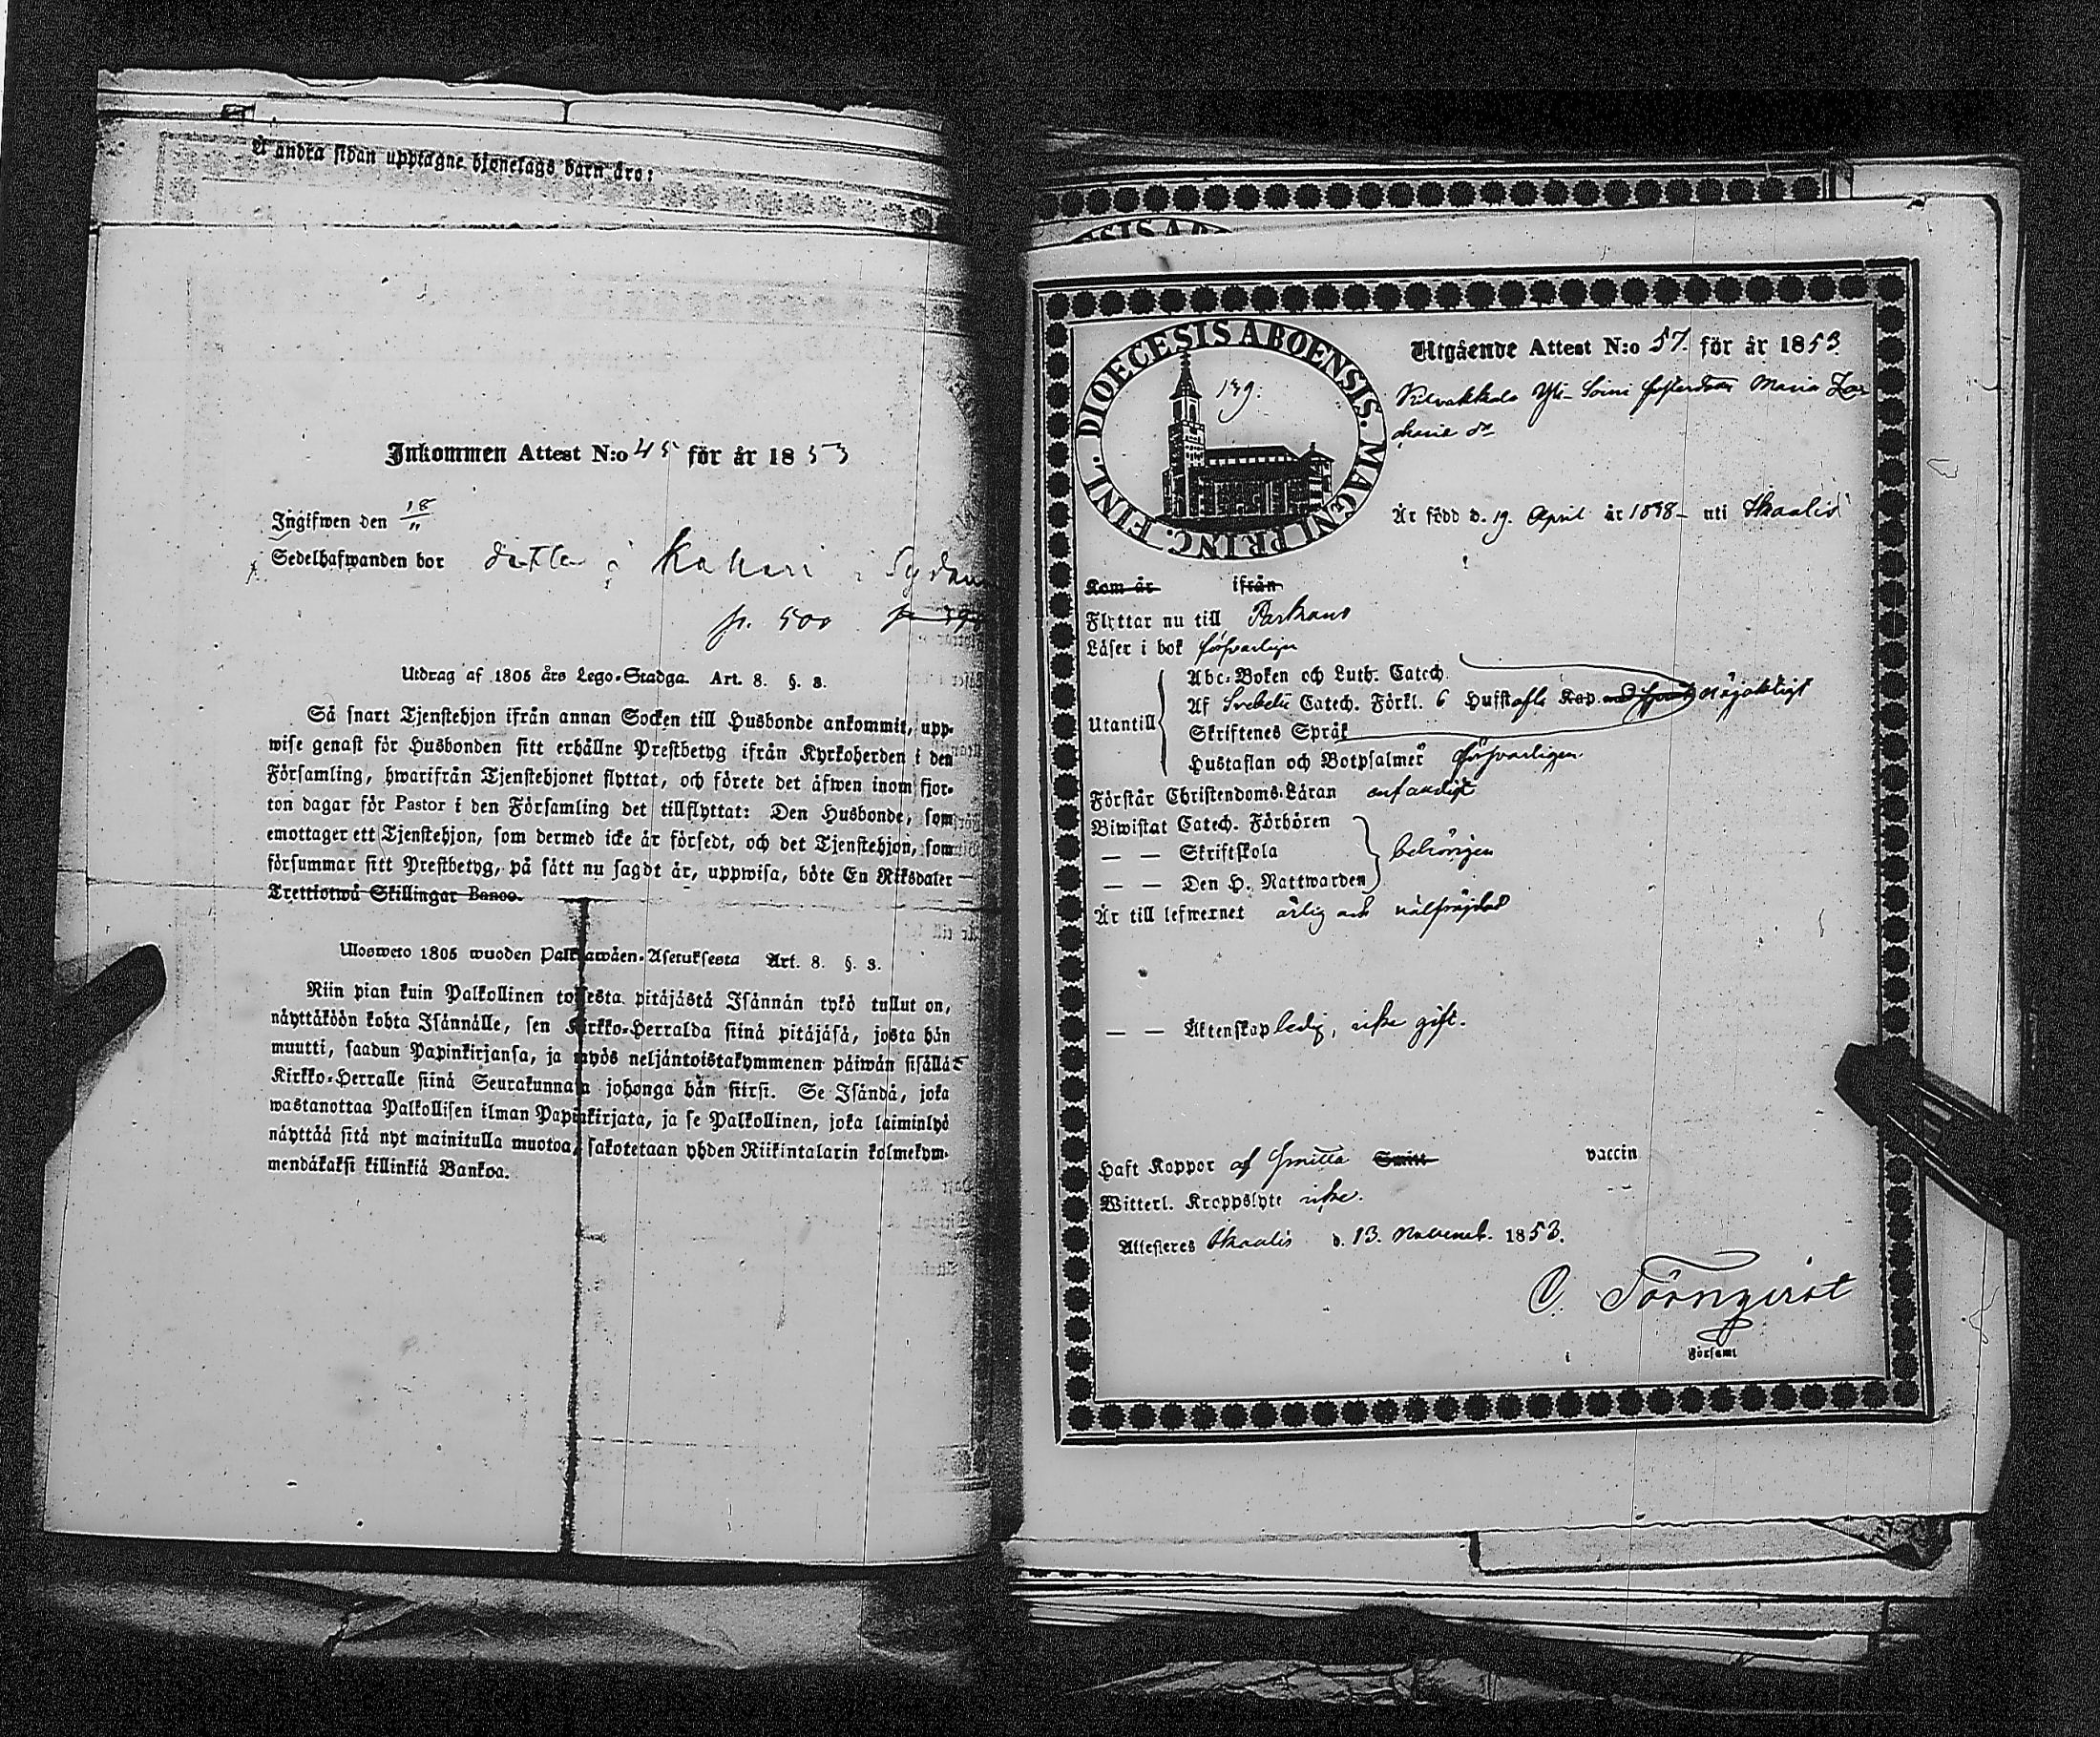 Å andra sidan upptagne bjonelags barn äro:
Inkommen Attest N:o 45 för år 1853
Ingifwen den 18/11
Sedelhafwanden bor i Kahari i
p. 500
Utdrag af 1805 års Lego-Stadga. Art. 8. §. 8.
Så snart Tjenstehjon ifrån annan Socken till Husbonde ankommit, upp-
wise genast för Husbonden sitt erhållne Prestbetyg ifrån Kyrkoherden i den
Församling, hwarifrån Tjenstehjonet flyttat, och förete det äfwen inom fjor-
ton dagar för Pastor i den Församling det tillflyttat: Den Husbonde, som
emottager ett Tjenstehjon, som dermed icke är försedt, och det Tjenstehjon, som
försummar sitt Prestbetyg, på sätt nu sagdt är, uppwisa, böte En Riksdaler
Trettiotwå Skillingar Banco.
Ulosweto 1805 wuoden Palkkawäen-Asetuksesta Art. 8. §. 8.
Niin pian kuin Palkollinen toisesta pitäjästä Isännän tykö tullut on,
näyttäköön kohta Isännälle, sen Kirkko-Herralda siinä pitäjäsä, josta hän
muutti, saadun Papinkirjansa, ja myös neljäntoistakymmenen päiwän sisällä
Kirkko-Herralle siinä Seurakunnasa johonga hän siirsi. Se Isändä, joka
wastanottaa Palkollisen ilman Papinkirjata, ja se Palkollinen, joka laiminlyö
näyttää sitä nyt mainitulla muotoa, sakotetaan yhden Riikintalarin kolmekym-
mendäkaksi killinkiä Bankoa.
DIOECESIS ABOENSIS. MAGNI PRINC. FINL.
139.
Utgående Attest N:o 57. för år 1853.
Kilvakkala Yli-Soini Maria Za-
charie dr
Är född d. 19. April år 1838 uti Ikaalis
Kom år ifrån
Flyttar nu till Parkano
Läser i bok försvarligen
Utantill
Abc-Boken och Luth. Catech.
Af Svebelii Catech. Förkl. 6 Hufstycke Kap. nöjaktigt
Skriftenes Språk
Hustaflan och Botpsalmer försvarligen
Förstår Christendoms-Läran enfaldigt
Biwistat Catech. Förhören
— — Skriftskola behörigen
— — Den H. Nattwarden
Är till lefwernet ärlig och välfräjdad
— — Äktenskap ledig, icke gift.
Haft Koppor af Smitta Smitt vaccin
Witterl. Kroppslyte icke.
Attesteres Ikaalis d. 13. Novemb. 1853.
C. Törnqvist
Församl